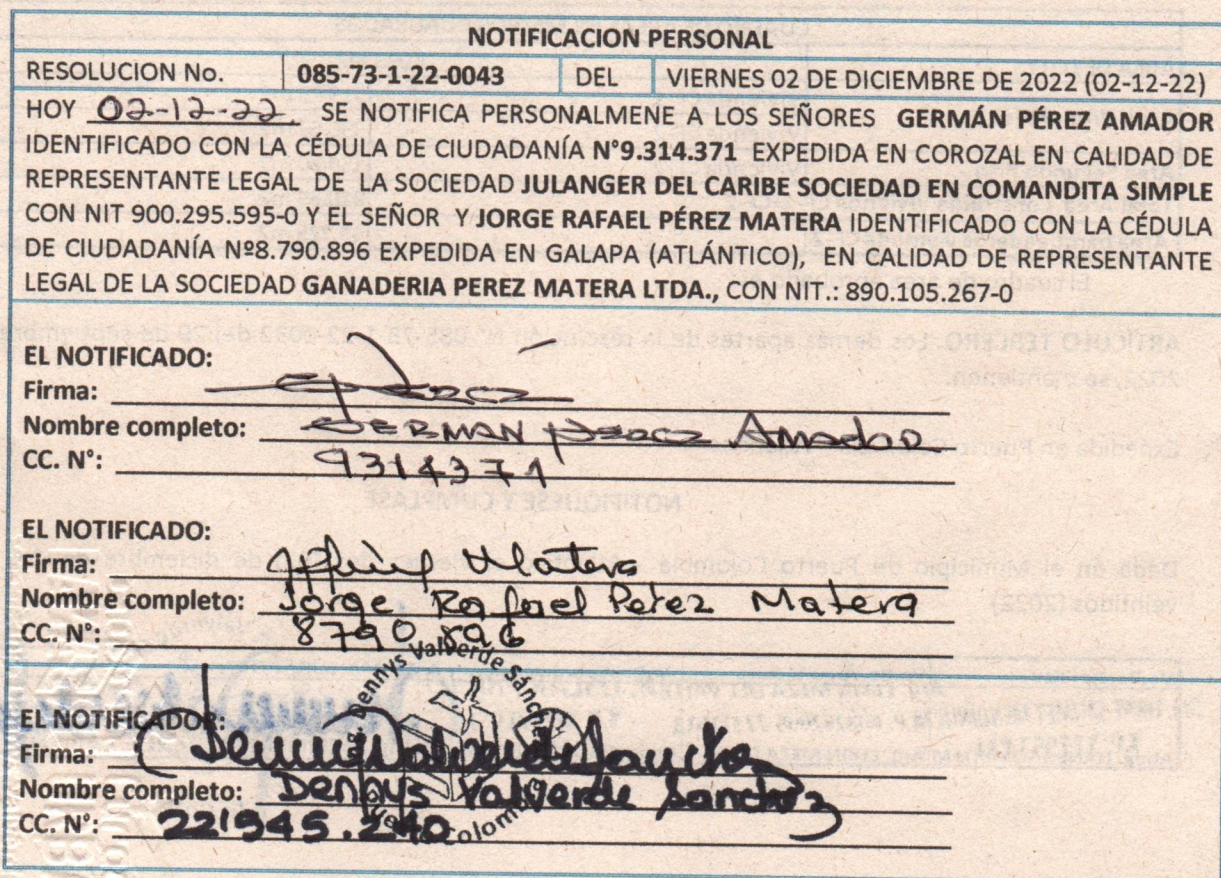 NOTIFICACION PERSONAL
RESOLUCION No. 085-73-1-22-0043 DEL VIERNES 02 DE DICIEMBRE DE 2022 (02-12-22)
HOY 02-12-22 SE NOTIFICA PERSONALMENE A LOS SEÑORES GERMÁN PÉREZ AMADOR
IDENTIFICADO CON LA CÉDULA DE CIUDADANÍA N°9.314.371 EXPEDIDA EN COROZAL EN CALIDAD DE
REPRESENTANTE LEGAL DE LA SOCIEDAD JULANGER DEL CARIBE SOCIEDAD EN COMANDITA SIMPLE
CON NIT 900.295.595-0 Y EL SEÑOR Y JORGE RAFAEL PÉREZ MATERA IDENTIFICADO CON LA CÉDULA
DE CIUDADANÍA Nº8.790.896 EXPEDIDA EN GALAPA (ATLÁNTICO), EN CALIDAD DE REPRESENTANTE
LEGAL DE LA SOCIEDAD GANADERIA PEREZ MATERA LTDA., CON NIT.: 890.105.267-0
EL NOTIFICADO:
Firma:
Nombre completo: GERMAN Perez AmADOR
CC. N°: 9314371
EL NOTIFICADO:
Firma: Matera
Nombre completo: Jorge Rafael Perez Matera
CC. N°: 8790896
Dennys Valverde Sánchez
EL NOTIFICADOR:
Firma: Dennys Valverde Sanchez
Nombre completo: Dennys Valverde Sanchez
CC. N°: 22'945.240